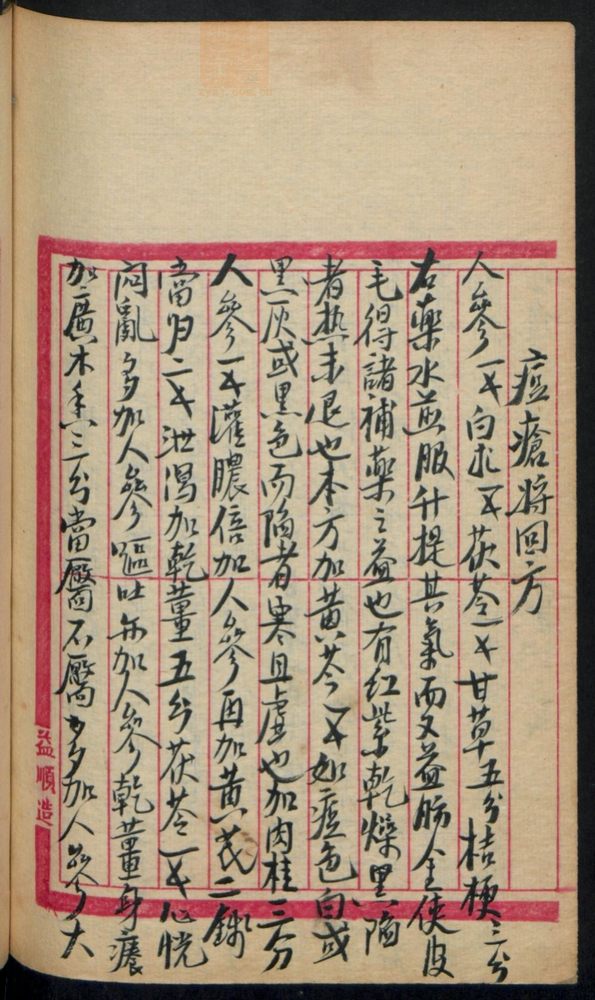 痘瘡將回方
人參一𠦑白朮一𠦑茯苓一𠦑甘草五分桔梗三分
右藥水煎服升提其氣而又益肺金使皮
毛得諸補藥之益也有紅紫乾燥黑陷
者熱未退也本方加黃芩一𠦑如痘色白或
黑灰或黑色而陷者寒且虛也加肉桂三分
人參一𠦑灌膿倍加人參再加黃芪二錢
當归二𠦑泄瀉加乾薑五分茯苓一𠦑心恍
悶亂多加人參嘔吐亦加人參乾薑身癢
加廣木香三分當靨不靨多加人參大
益順造